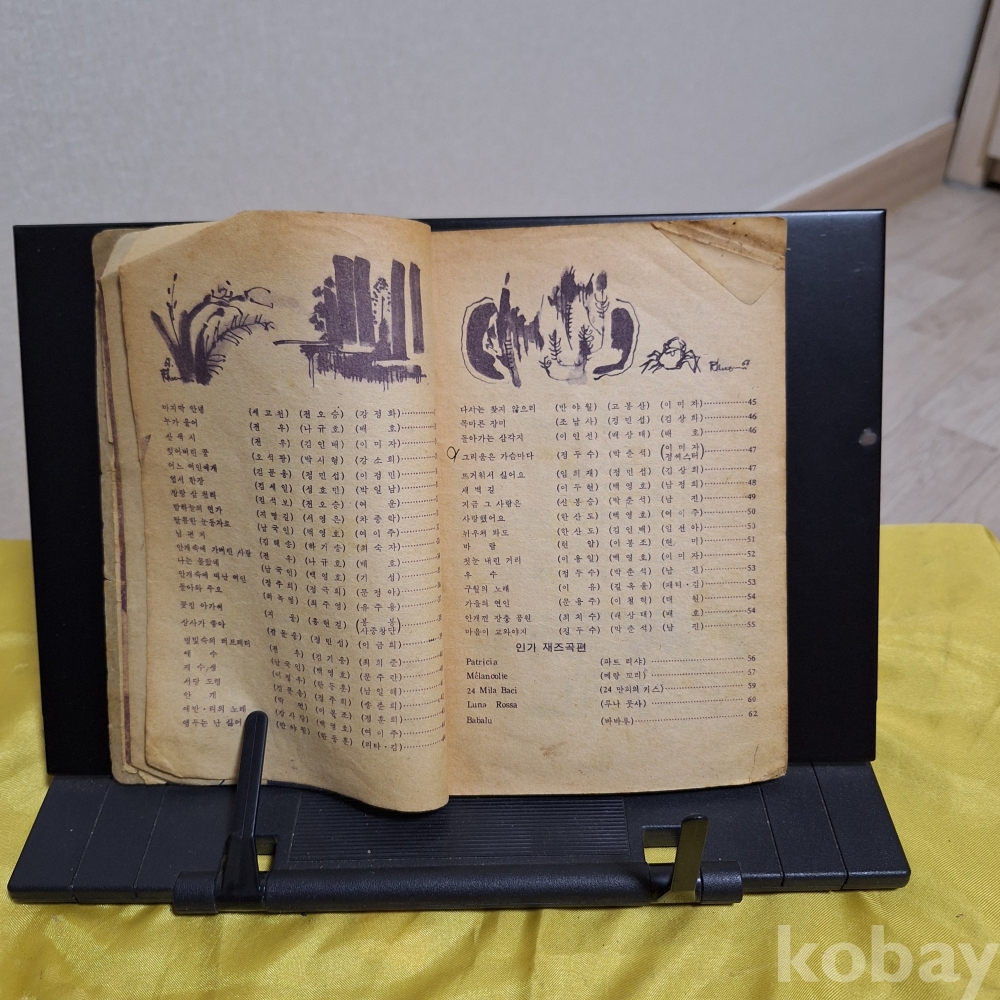 마지막 안녕 (세고천) (전오승) (강정화)
누가 울어 (전 우) (나규호) (배 호)
산 색 시 (전 우) (김인배) (이미자)
잊어버린 꽃 (오석광) (박시형) (강소희)
어느 여인에게 (김문응) (정민섭) (이정민)
엽서 한장 (김세일) (성호민) (박일남)
(진석보) (전오승) (여 운)
밤하늘의 연가 (지명길) (서영은) (차중락)
말뚱한 눈동자로 (남국인) (백영호) (여이주)
님 편 지 (김해송) (하기송) (최숙자)
안개속에 가버린 사랑 (전 우) (나규호) (배 호)
나는 몰랐네 (남국인) (백영호) (기 성)
안개속에 떠난 여인 (정주희) (정국희) (문정아)
돌아와 주오 (최주영) (유주용)
꽃집 아가씨 (지 웅) (홍현걸) (봉 봉 사중창단)
상사가 좋아 (정민섭) (이금희)
애 수 (전 우) (김기웅) (최희준)
(남국인) (백영호) (문주란)
서당 도령 (한동훈) (남일해)
안 개 (김문응) (정주희)
여인·의의 노래 (박 현) (이봉조) (정훈희)
앵무는 난 싫어 (백영호) (여이주)
(반야월) (한동훈) (리타·김)
다시는 찾지 않으리 (반야월) (고봉산) (이미자) 45
목마른 장미 (조남사) (정민섭) (김상희) 46
돌아가는 삼각지 (이인선) (배상태) (배 호) 46
그리움은 가슴마다 (정두수) (박춘석) (이미자 정씨스터) 47
뜨거워서 싫어요 (임희재) (정민섭) (김상희) 47
새 벽 길 (이두현) (백영호) (남정희) 48
지금 그 사람은 (신봉승) (박춘석) (남 진) 49
사랑했어요 (한산도) (백영호) (여이주) 50
뉘우쳐 봐도 (한산도) (김인배) (임선아) 50
바 람 (현 암) (이봉조) (현 미) 51
첫눈 내린 거리 (이용일) (백영호) (이미자) 52
우 수 (정두수) (박춘석) (남 진) 53
구월의 노래 (이 유) (길옥윤) (패티·김) 53
가을의 연인 (문용주) (이철혁) (더 현) 54
안개낀 장충 공원 (최치수) (배상태) (배 호) 54
마음이 고와야지 (정두수) (박춘석) (남 진) 55
인가 재즈곡편
Patricia (파트리샤) 56
Mélancolie (메랑꼬리) 57
24 Mila Baci (24만의 키스) 59
Luna Rossa (루나 롯사) 60
Babalu (바바루) 62
kobay